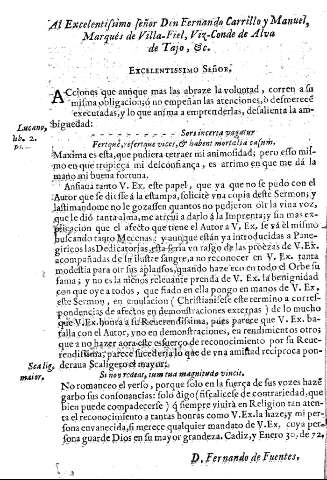 Al Excelentissimo señor Don Fernando Carrillo y Manuel,
Marquès de Villa-Fiel, Viz-Conde de Alva
de Tajo, &c.
EXCELENTISSIMO SEÑOR.
ACciones que aunque mas las abraze la voluntad, corren a su
misma obligacion; ò no empeñan las atenciones, ò desmerecē
executadas, y lo que anima a emprenderlas, desalienta la am-
biguedad:
Lucano,
lib. 2.
Sors incerta vagatur
Fertque, refertque vices, & habent mortalia casum.
Maxima es esta, que pudiera retraer mi animosidad; pero esso mis-
mo en que tropieça mi desconfiança, es arrimo en que me dà la
mano mi buena fortuna.
Ansiava tanto V. Ex. este papel, que ya que no se pudo con el
Autor que se diesse à la estampa, solicitè vna copia deste Sermon; y
lastimandome no le gozassen quantos no pudieron oir la viva voz,
que le diò tanta alma, me atrevì a darlo à la Imprenta; y sin mas ex-
plicacion que el afecto que tiene el Autor a V. Ex. se và èl mismo
buscando tanto Mecenas: y aunque estàn ya introducidas a Pane-
giricos las Dedicatorias, esta seria vn rasgo de las proezas de V. Ex.
acompañadas de su ilustre sangre, a no reconocer en V. Ex. tanta
modestia para oir sus aplausos, quando haze eco en todo el Orbe su
fama; y no es la menos relevante prenda de V. Ex. la benignidad
con que oye a todos, que fiado en ella pongo en manos de V. Ex.
este Sermon, en emulacion (Christianese este termino a corres-
pondencias de afectos en demonstraciones externas) de lo mucho
que V. Ex. honra a su Reverendissima, pues parece que V. Ex. ba-
talla con el Autor, y no en demonstraciones, a rendimientos otros
que a no hazer aora este esfuerço de reconocimiento por su Reue-
rendissima, parece sucederia lo que de vna amistad reciproca pon-
deraua Scaligero el mayor:
Scalig.
maior.
Si nos redat, cum tua magnitudo vincit.
No romanceo el verso, porque solo en la fuerça de sus vozes hazē
garbo sus consonancias: solo digo (fiscalicese de contrariedad, que
bien puede compadecerse) q̃ siempre vivirà en Religion tan aten-
ta el reconocimiento a tantas honras como V. Ex. la haze, y mi per-
sona envanecida, si merece qualquier mandato de V. Ex. cuya per-
sona guarde Dios en su mayor grandeza. Cadiz, y Enero 30. de 72.
D. Fernando de Fuentes.